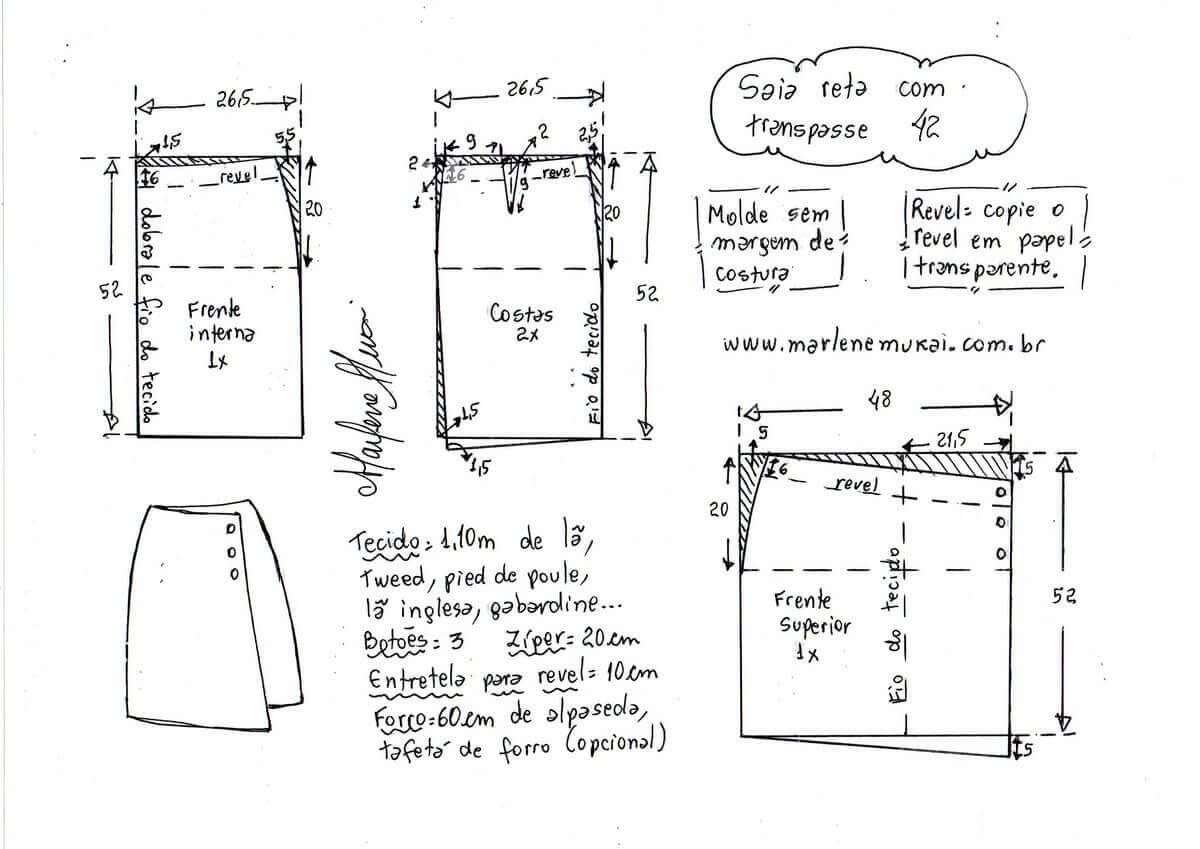 Saia reta com
transpasse 42
Molde sem
margem de
costura
Revel= copie o
revel em papel
transparente.
www.marlenemukai.com.br
26,5
1,5
5,5
6
revel
20
52
dobra e fio do tecido
Frente
interna
1x
26,5
9
2
2,5
2
6
9
revel
1
20
52
Costas
2x
Fio do tecido
1,5
1,5
Marlene Mukai
48
21,5
5
6
5
revel
20
52
Fio do tecido
Frente
Superior
1x
5
Tecido= 1,10m de lã,
Tweed, pied de poule,
lã inglesa, gabardine...
Botões= 3 Zíper= 20cm
Entretela para revel= 10cm
Forro=60cm de alpaseda,
tafetá de forro (opcional)